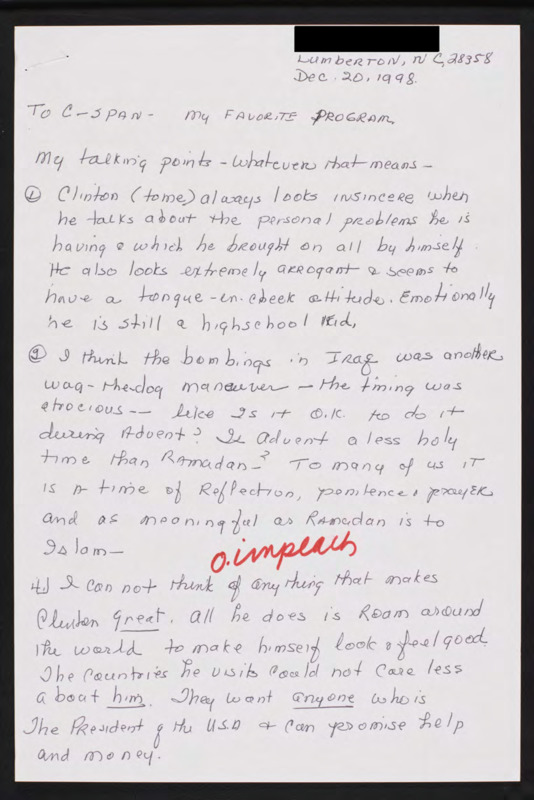 Lumberton, NC, 28358
Dec. 20, 1998.
To C-SPAN - My FAVORITE PROGRAM.
My talking points - whatever that means -
① Clinton (to me) always looks insincere when
he talks about the personal problems he is
having & which he brought on all by himself.
He also looks extremely arrogant & seems to
have a tongue-en-cheek attitude. Emotionally
he is still a highschool kid,
② I think the bombings in Iraq was another
wag-the-dog maneuver - the timing was
atrocious -- like Is it O.K. to do it
during Advent? Is Advent a less holy
time than Ramadan-? To many of us it
is a time of Reflection, penitence & prayer
and as meaningful as Ramadan is to
Islam-
O. impeach
4.) I can not think of anything that makes
Clinton great. All he does is Roam around
the world to make himself look & feel good.
The countries he visits could not care less
about him. They want anyone who is
The President of the USA & can promise help
and money.